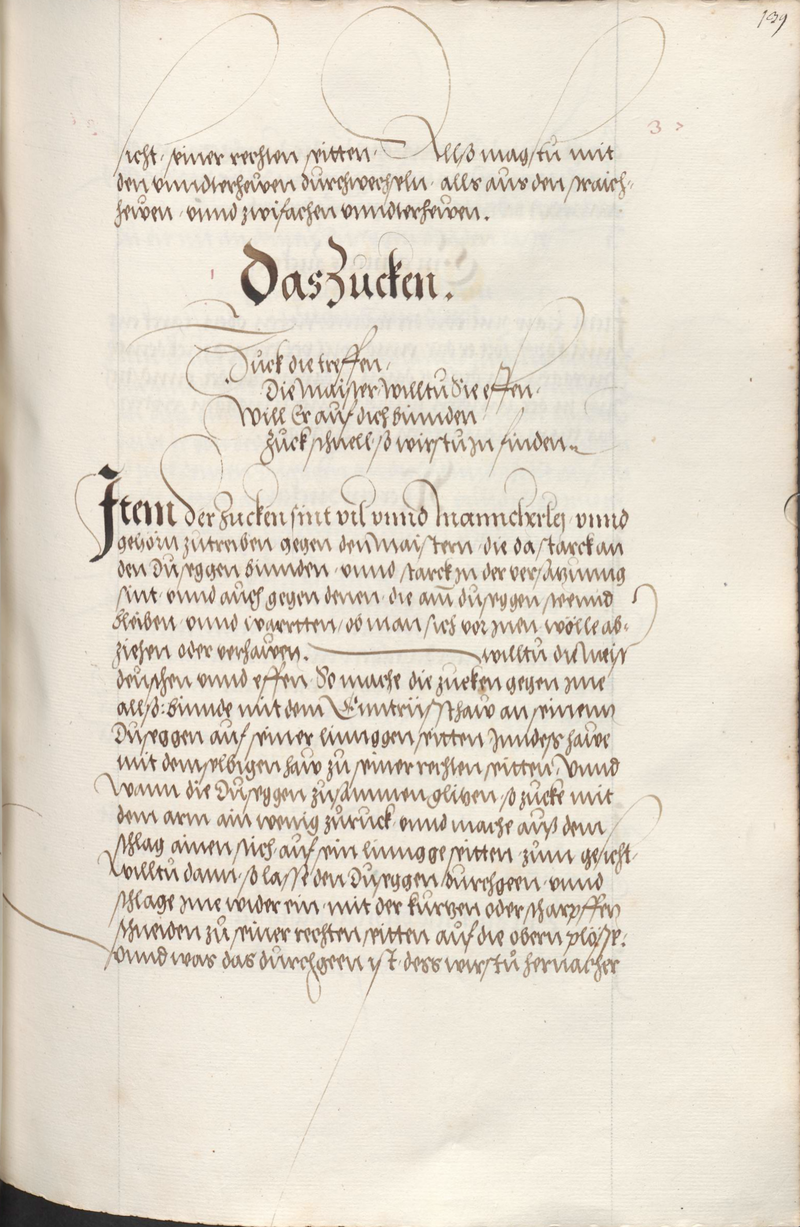 139
sicht seiner rechten seitten. Allso magstů mit
den vnndterhewen durchwechseln. alls aus den straich-
hewen vnnd zwifachen vnndterhewen.
Das Zucken.
Zuck die treffen,
Die maister willtu Sie effen.
Will Er auf dich binnden
Zuck schnell so wirstu jn finden.
Item der Zucken sint vil vnnd manncherley vnnd
gehörn zutreiben gegen den maistern die da starck an
den Duseggen binnden vnnd starck in der versatzunng
sint vnnd auch gegen denen die am̄ duseggen wennd
bleiben vnnd warttten ob man sich vor jnen wölle ab-
ziehen oder verhawen. willtu die meist
deuschen vnnd effen So mache die zucken gegen jme
allso: Binnde mit dem Entrüsthaw an seinem
Duseggen auf seiner linnggen seitten Jnndess hawe
mit demselbigen haw zu seiner rechten seitten, Vnnd
wann die Duseggen zusammen glitzen so zucke mit
dem arm ain wenig zůruck vnnd mache auß dem
schlag ainen stich auf sein linngge seitten zum gesicht.
willtu dann, so lasse den Duseggen durchgeen vnnd
schlage jme wider ein mit der kurtzen oder scharpffen
schneiden zů seiner rechten seitten auf die obern plösse.
Vnnd was das durchgeen ist. dess wirstů hernacher